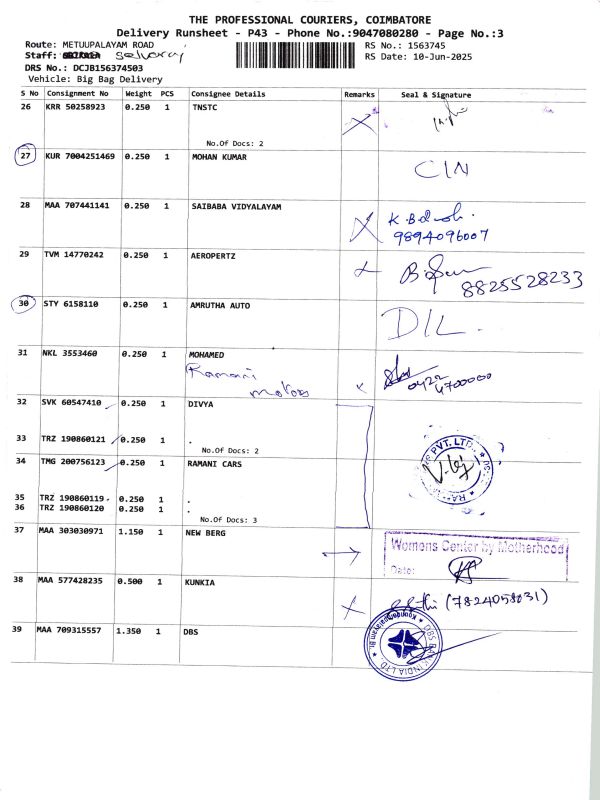 THE PROFESSIONAL COURIERS, COIMBATORE
Delivery Runsheet - P43 - Phone No.:9047080280 - Page No.:3
Route: METUUPALAYAM ROAD RS No.: 1563745
Staff: Selvaraj RS Date: 10-Jun-2025
DRS No.: DCJB156374503
Vehicle: Big Bag Delivery
S No Consignment No Weight PCS Consignee Details Remarks Seal & Signature
26 KRR 50258923 0.250 1 TNSTC
No.Of Docs: 2
27 KUR 7004251469 0.250 1 MOHAN KUMAR CIN
28 MAA 707441141 0.250 1 SAIBABA VIDYALAYAM
9894096007
29 TVM 14770242 0.250 1 AEROPERTZ
8825528233
30 STY 6158110 0.250 1 AMRUTHA AUTO D/L.
31 NKL 3553460 0.250 1 MOHAMED
Ramani Motors 0422 4700000
32 SVK 60547410 0.250 1 DIVYA
33 TRZ 190860121 0.250 1 .
No.Of Docs: 2
34 TMG 200756123 0.250 1 RAMANI CARS PVT. LTD.
35 TRZ 190860119 0.250 1 .
36 TRZ 190860120 0.250 1 .
No.Of Docs: 3
37 MAA 303030971 1.150 1 NEW BERG
Womens Center by Motherhood
Date:
38 MAA 577428235 0.500 1 KUNKIA (7824058031)
39 MAA 709315557 1.350 1 DBS
DBS BANK INDIA LTD